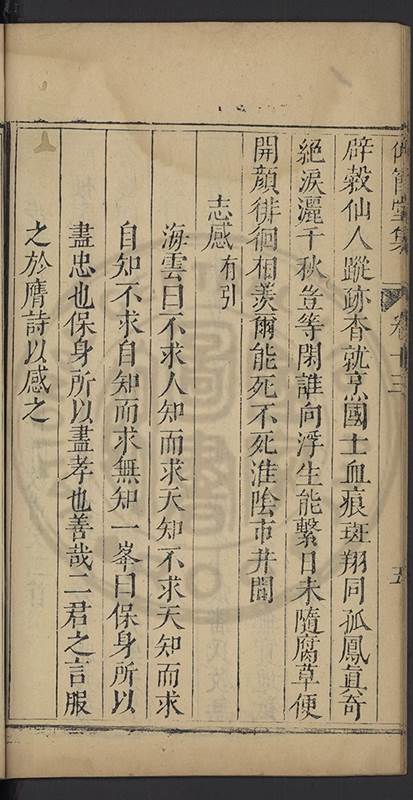 辟穀仙人蹤跡杳就烹國士血痕斑翔同孤鳳真奇
絕淚灑千秋豈等閑誰向浮生能繫日未隨腐草便
開顏徘徊相羨爾能死不死淮陰市井間
志感有引
海雲曰不求人知而求天知不求天知而求
自知不求自知而求無知一峯曰保身所以
盡忠也保身所以盡孝也善哉二君之言服
之於膺詩以感之
堂集
卷十三
五